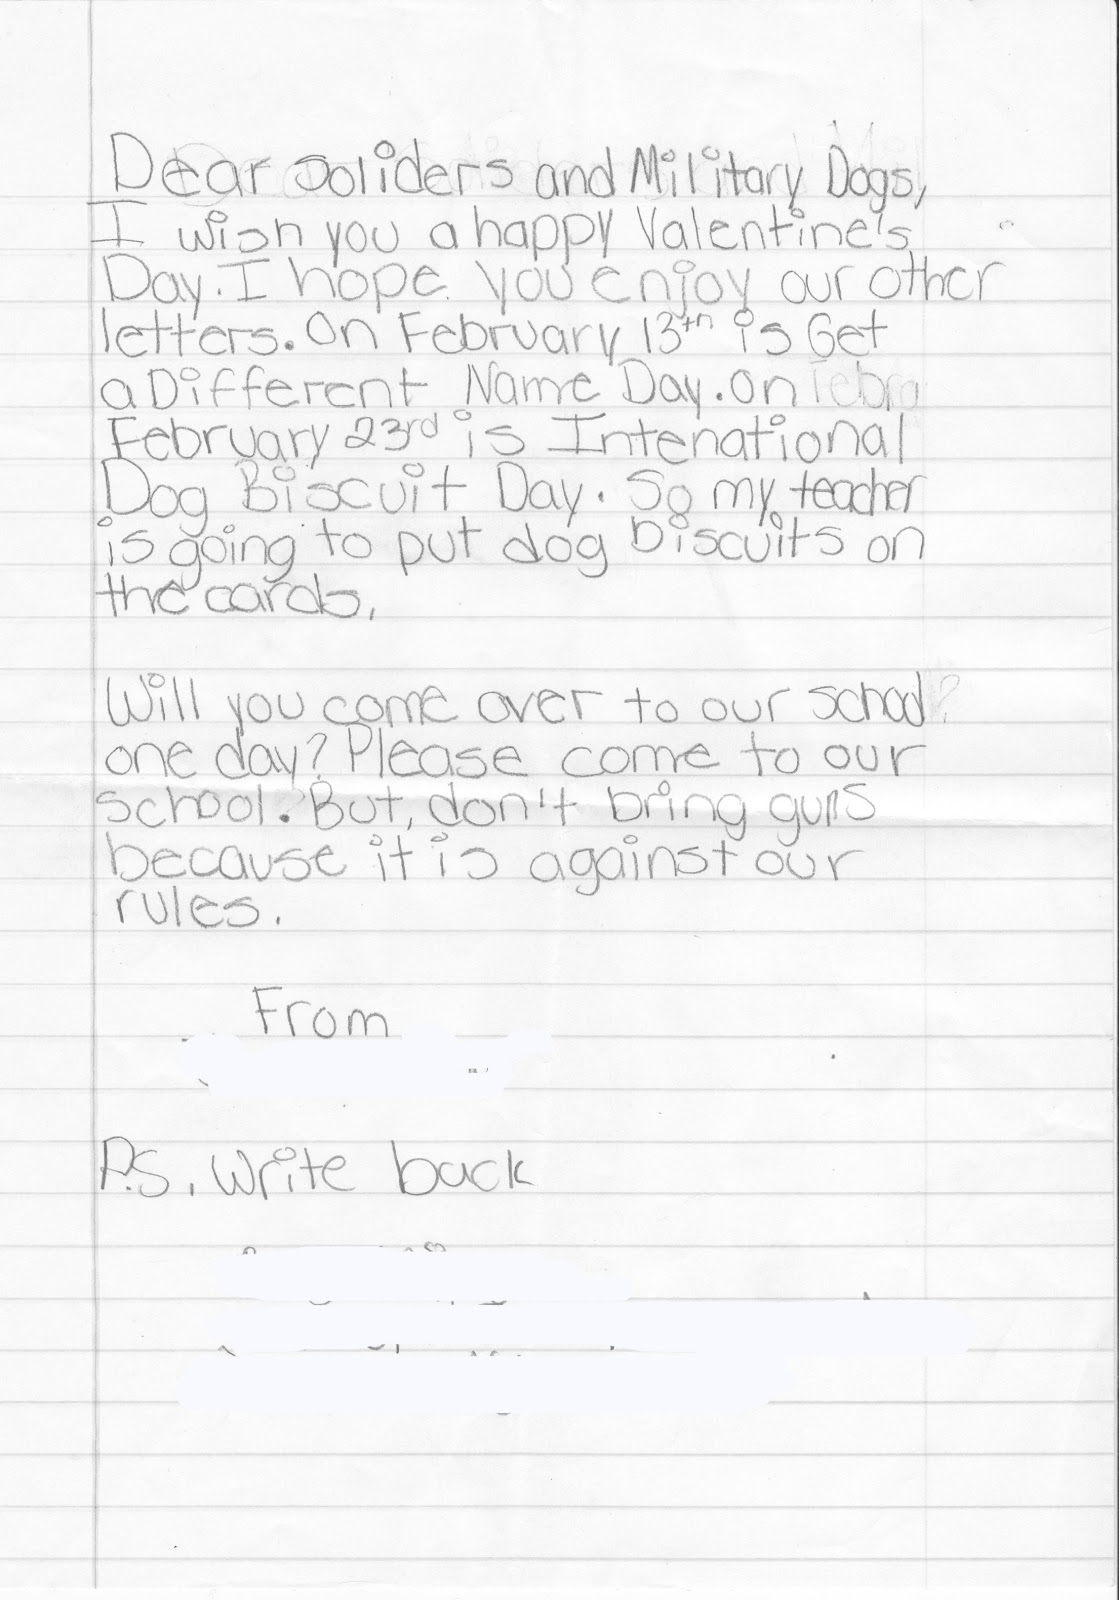 Dear Soliders and Military Dogs,
I wish you a happy Valentine's
Day. I hope you enjoy our other
letters. On February 13th is Get
a Different Name Day. On Febra
February 23rd is Intenational
Dog Biscuit Day. So my teacher
is going to put dog biscuits on
the cards.
Will you come over to our school?
one day? Please come to our
school. But, don't bring guns
because it is against our
rules.
From
P.S. Write back